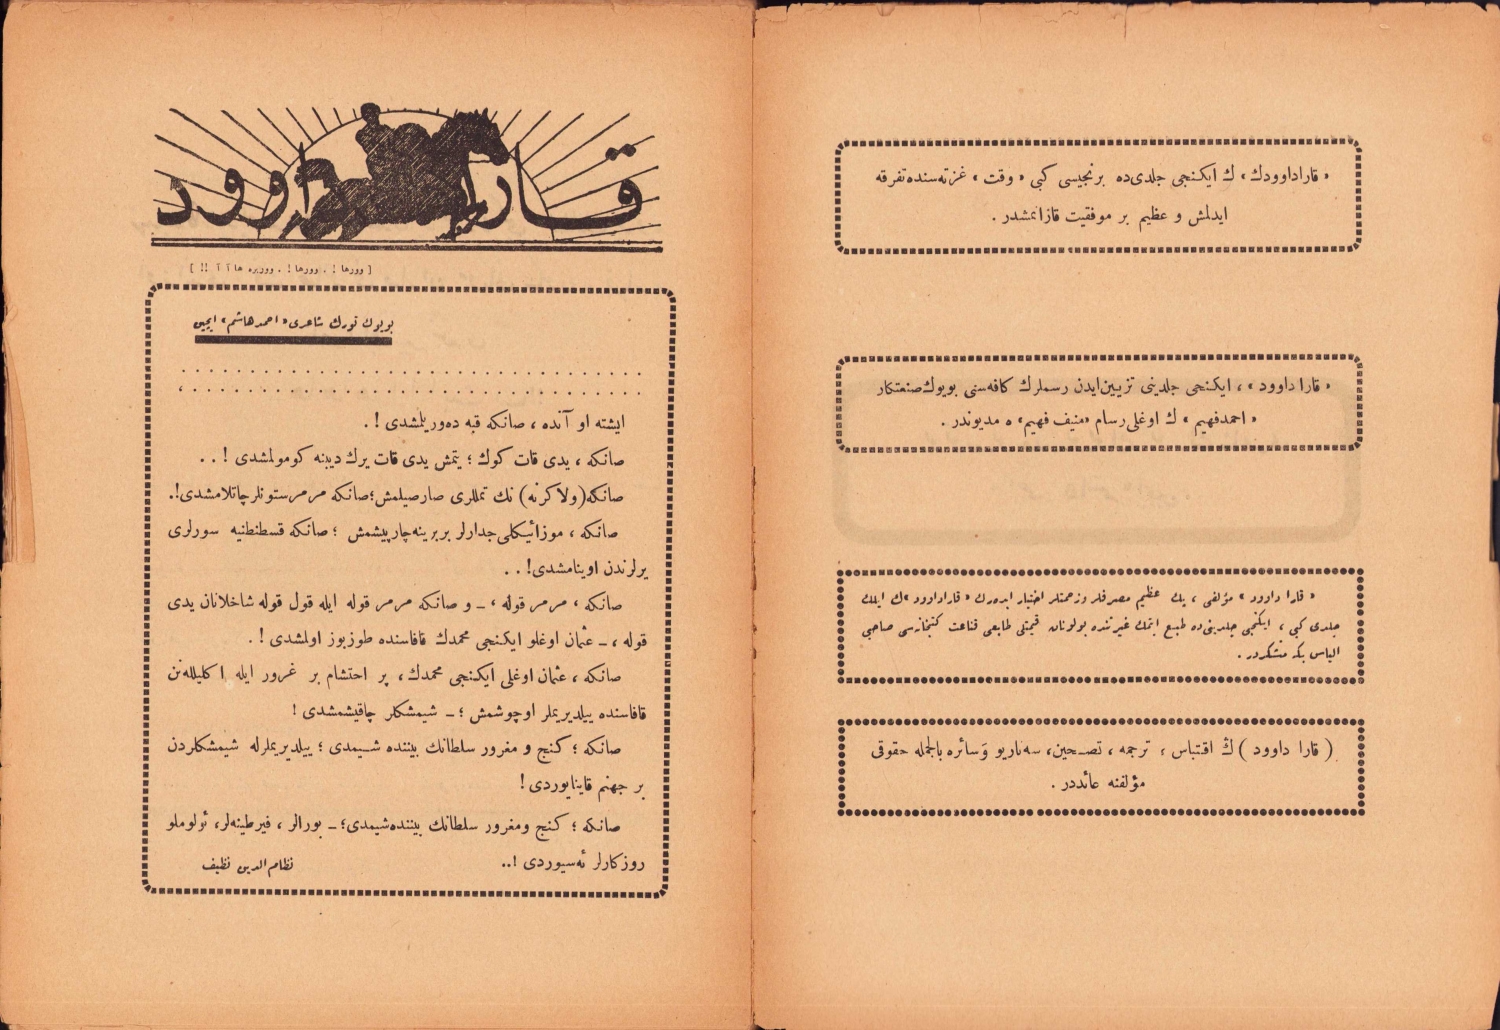 « قاراداوودك » ك ايكنجى جلدى‌ده برنجيسى كبى « وقت » غزته‌سنده تفرقه
ايدلمش و عظيم بر موفقيت قازانمشدر .
« قارا داوود » ، ايكنجى جلدينى تزيين‌ايدن رسملرك كافه‌سنى بويوك صنعتكار
« احمدفهيم » ك اوغلى رسام «منيف فهيم» ه مديوندر .
« قارا داوود » مؤلفى ، پك عظيم مصرفلر و زحمتلر اختيار ايده‌رك « قاراداوود »ك ايلك
جلدى كبى ، ايكنجى جلدينى‌ده طبع ايتمك غيرتنده بولونان قيمتلى طابعى قناعت كتبخانه‌سى صاحبى
الياس بكه متشكردر .
( قارا داوود ) ك اقتباس ، ترجمه ، تصحين، سه‌ناريو وَسائره بالجمله حقوقى
مؤلفنه عائددر .
قارا داوود
[ وورها ! . وورها ! . ووريره هاآ آ !! ]
بويوك تورك شاعرى « احمدهاشم » ايچين
. . . . . . . . . . . . . . . . . . . . . . . . . . . . . . . . . .
. . . . . . . . . . . . . . . . . . . . . . . . . . . . . . . . . ،
ايشته او آنده ، صانكه قبه ده‌وريلمشدى ! .
صانكه ، يدى قات كوك ؛ يتمش يدى قات يرك ديبنه كومولمشدى ! . .
صانكه(ولاكرنه) نك تمللرى صارصيلمش؛صانكه مرمرستونلرچاتلامشدى!.
صانكه ، موزائيكلى‌جدارلر بربرينه‌چارپيشمش ؛ صانكه قسطنطنيه سورلرى
يرلرندن اوينامشدى! . .
صانكه ، مرمر قوله ، ـ و صانكه مرمر قوله ايله قول قوله شاخلانان يدى
قوله ، ـ عثمان اوغلو ايكنجى محمدك قافاسنده طوزبوز اولمشدى ! .
صانكه ، عثمان اوغلى ايكنجى محمدك ، پر احتشام بر غرور ايله اكليلله‌نن
قافاسنده ييلديريملر اوچوشمش ؛ ـ شيمشكلر چاقيشمشدى !
صانكه ؛ كنج و مغرور سلطانك بيننده شيمدى ؛ ييلديريملرله شيمشكلردن
بر جهنم قاينايوردى !
صانكه ؛ كنج ومغرور سلطانك بيننده‌شيمدى؛ ـ بورالر ، فيرطينه‌لر، ئولوملو
روزكارلر ئه‌سيوردى !..
نظام‌الدين نظيف